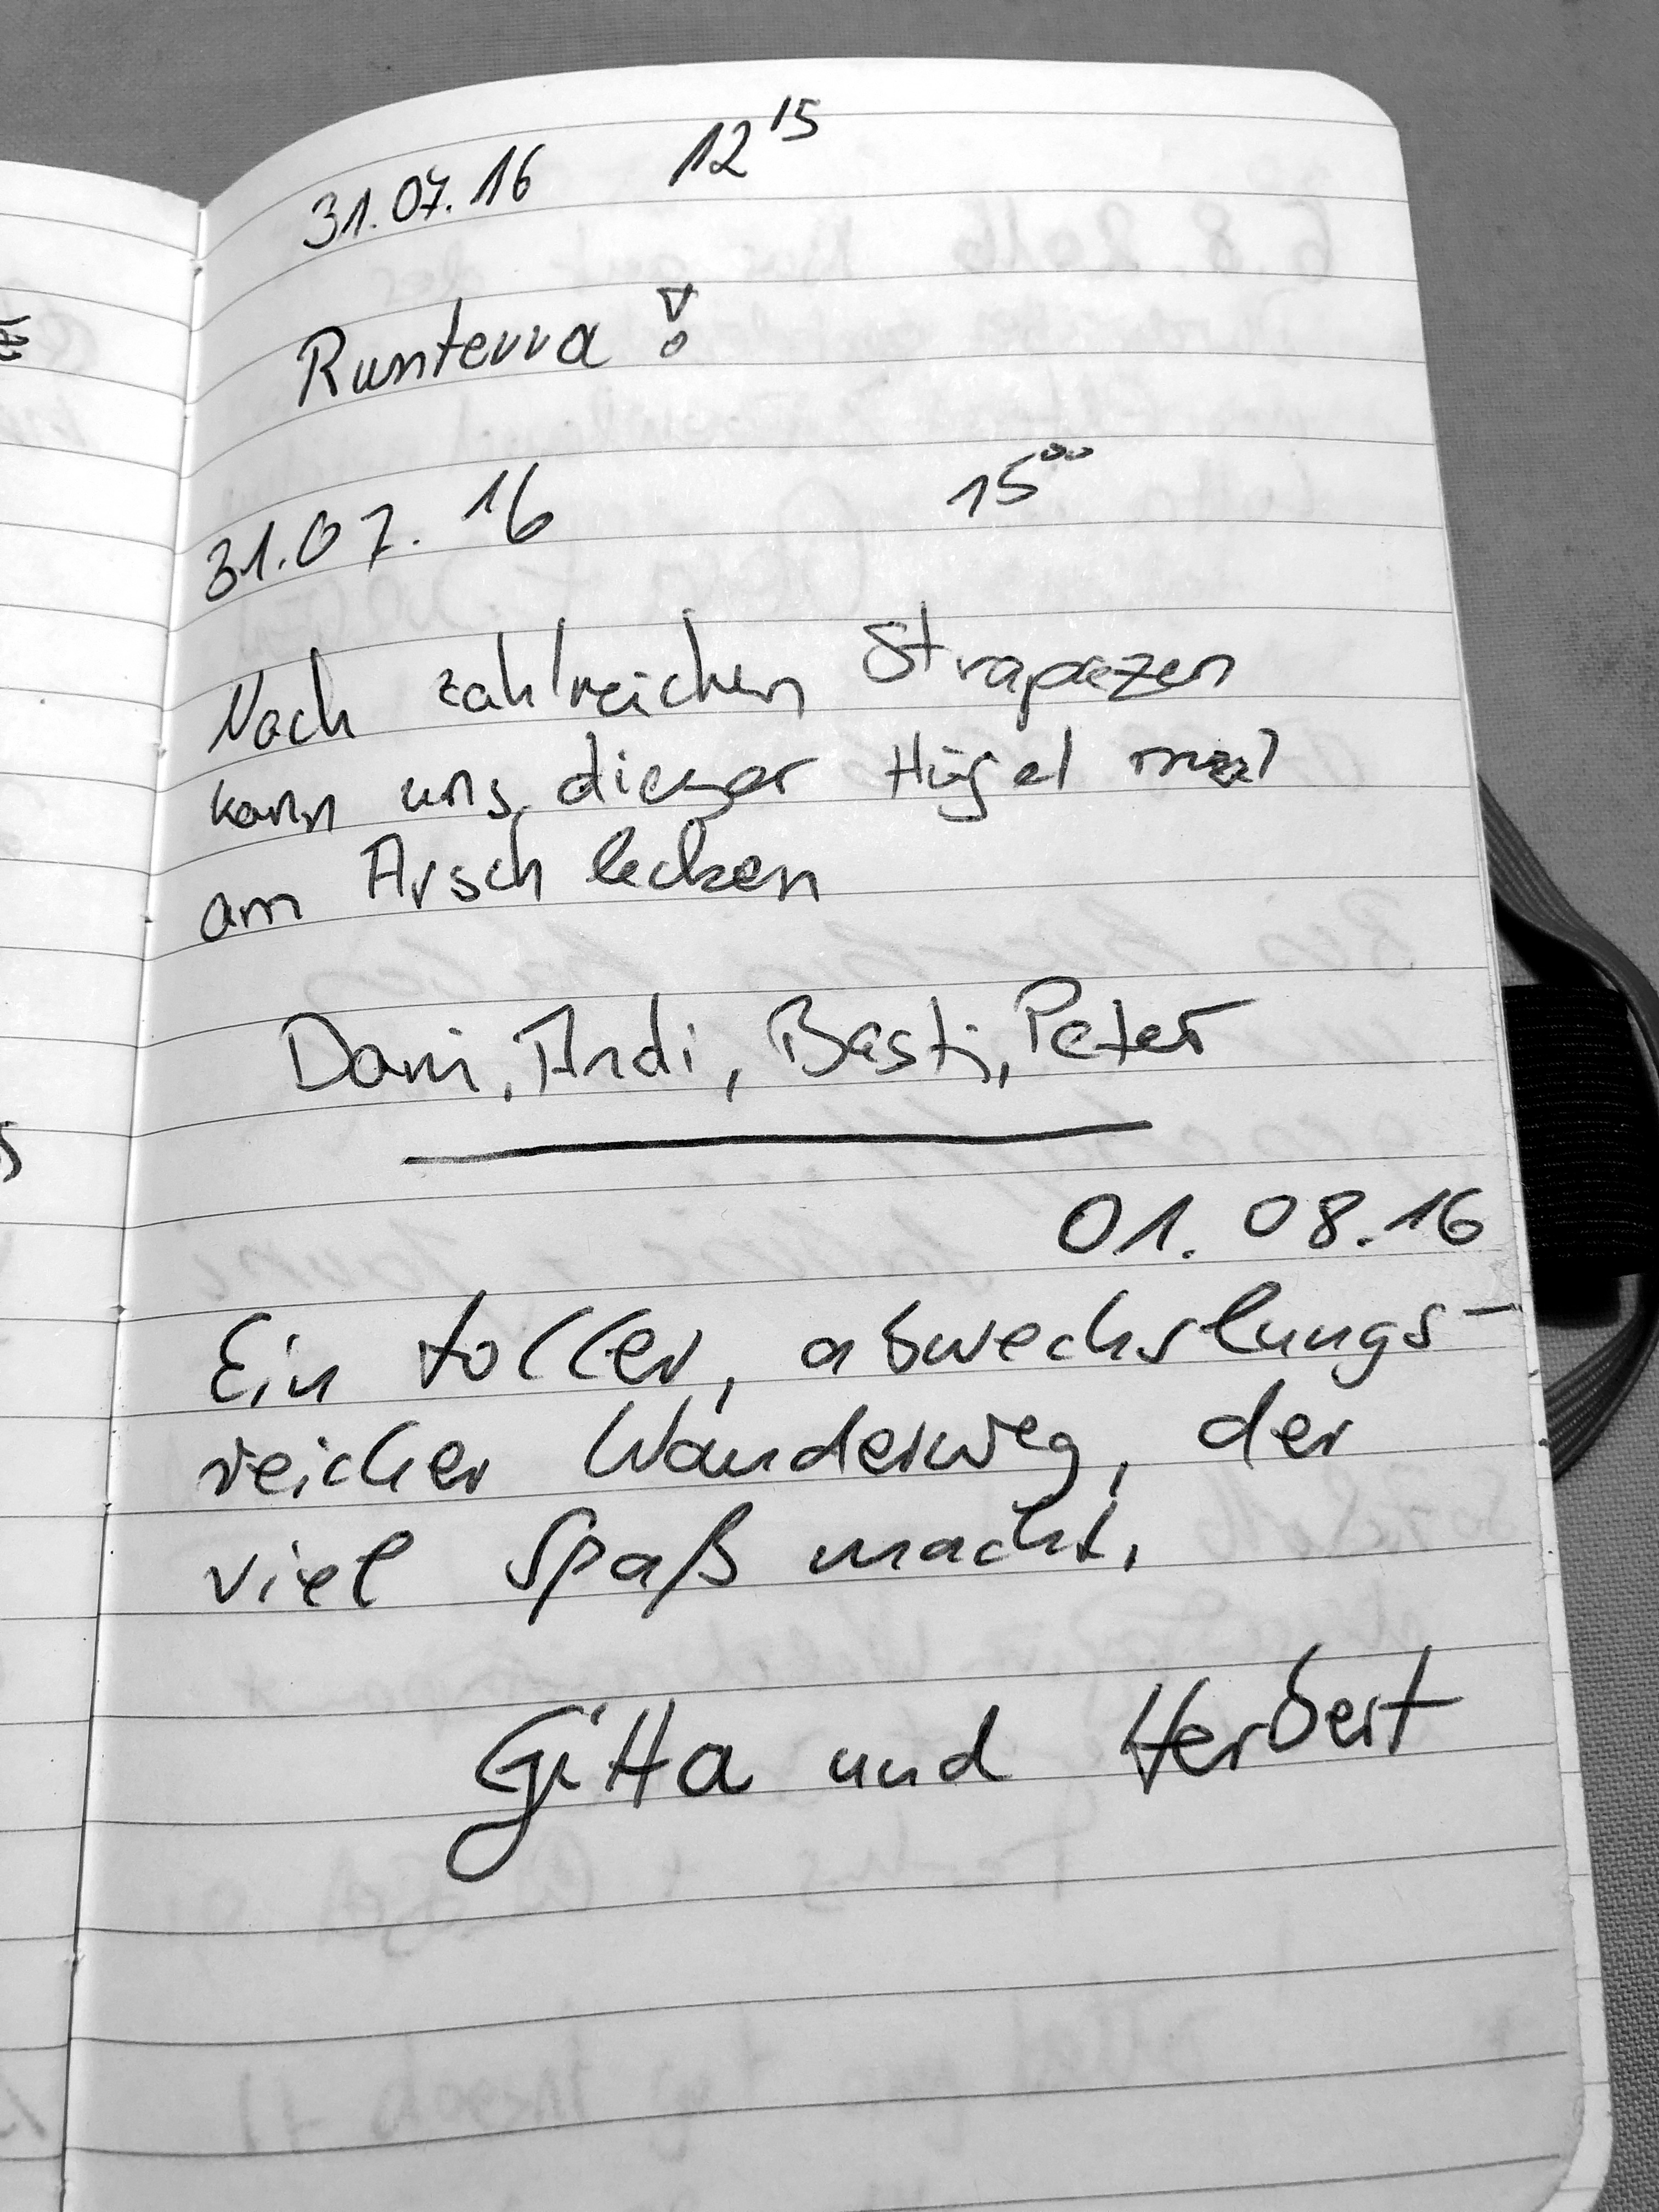 31.07.16 12 15
Runterra!
31.07.16 15 00
Nach zahlreichen Strapazen
kann uns dieser Hügel mal
am Arsch lecken
Dani, Andi, Basti, Peter
01.08.16
Ein toller, abwechslungs-
reicher Wanderweg, der
viel Spaß macht.
Gitta und Herbert